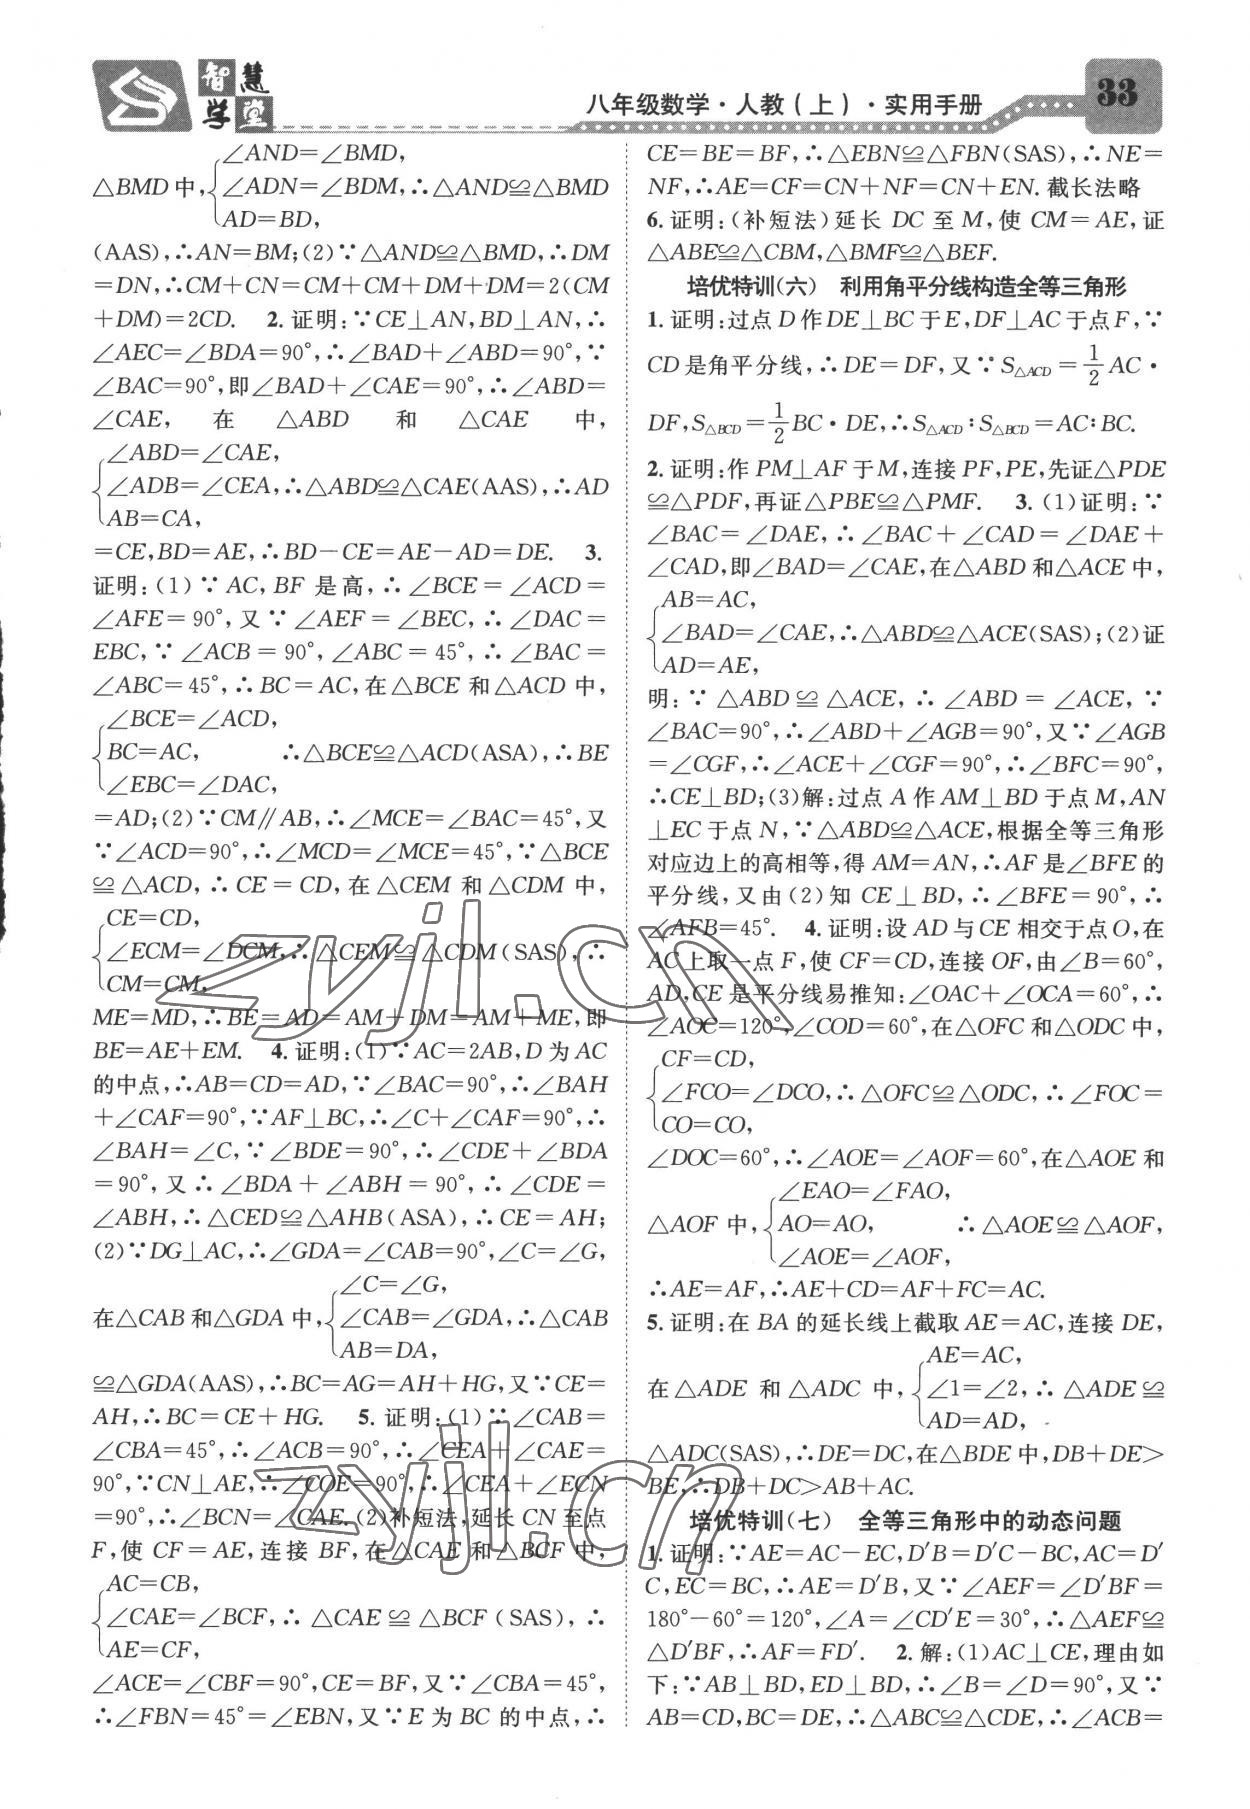 智慧学堂
八年级数学·人教(上)·实用手册
33
∠AND=∠BMD,
△BMD中,∠ADN=∠BDM,∴△AND≌△BMD
AD=BD,
(AAS),∴AN=BM;(2)∵△AND≌△BMD,∴DM
=DN,∴CM+CN=CM+CM+DM+DM=2(CM
+DM)=2CD. 2.证明:∵CE⊥AN,BD⊥AN,∴
∠AEC=∠BDA=90°,∴∠BAD+∠ABD=90°,∵
∠BAC=90°,即∠BAD+∠CAE=90°,∴∠ABD=
∠CAE, 在 △ABD 和 △CAE 中,
∠ABD=∠CAE,
∠ADB=∠CEA,∴△ABD≌△CAE(AAS),∴AD
AB=CA,
=CE,BD=AE,∴BD-CE=AE-AD=DE. 3.
证明:(1)∵AC,BF是高,∴∠BCE=∠ACD=
∠AFE=90°,又∵∠AEF=∠BEC,∴∠DAC=
EBC,∵∠ACB=90°,∠ABC=45°,∴∠BAC=
∠ABC=45°,∴BC=AC,在△BCE和△ACD中,
∠BCE=∠ACD,
BC=AC, ∴△BCE≌△ACD(ASA),∴BE
∠EBC=∠DAC,
=AD;(2)∵CM∥AB,∴∠MCE=∠BAC=45°,又
∵∠ACD=90°,∴∠MCD=∠MCE=45°,∵△BCE
≌△ACD,∴CE=CD,在△CEM和△CDM中,
CE=CD,
∠ECM=∠DCM,∴△CEM≌△CDM(SAS),∴
CM=CM,
ME=MD,∴BE=AD=AM+DM=AM+ME,即
BE=AE+EM. 4.证明:(1)∵AC=2AB,D为AC
的中点,∴AB=CD=AD,∵∠BAC=90°,∴∠BAH
+∠CAF=90°,∵AF⊥BC,∴∠C+∠CAF=90°,∴
∠BAH=∠C,∵∠BDE=90°,∴∠CDE+∠BDA
=90°,又∴∠BDA+∠ABH=90°,∴∠CDE=
∠ABH,∴△CED≌△AHB(ASA),∴CE=AH;
(2)∵DG⊥AC,∴∠GDA=∠CAB=90°,∠C=∠G,
∠C=∠G,
在△CAB和△GDA中,∠CAB=∠GDA,∴△CAB
AB=DA,
≌△GDA(AAS),∴BC=AG=AH+HG,又∵CE=
AH,∴BC=CE+HG. 5.证明:(1)∵∠CAB=
∠CBA=45°,∴∠ACB=90°,∴∠CEA+∠CAE=
90°,∵CN⊥AE,∴∠COE=90°,∴∠CEA+∠ECN
=90°,∴∠BCN=∠CAE.(2)补短法,延长CN至点
F,使CF=AE,连接BF,在△CAE和△BCF中,
AC=CB,
∠CAE=∠BCF,∴△CAE≌△BCF(SAS),∴
AE=CF,
∠ACE=∠CBF=90°,CE=BF,又∵∠CBA=45°,
∴∠FBN=45°=∠EBN,又∵E为BC的中点,∴
CE=BE=BF,∴△EBN≌△FBN(SAS),∴NE=
NF,∴AE=CF=CN+NF=CN+EN.截长法略
6.证明:(补短法)延长DC至M,使CM=AE,证
△ABE≌△CBM,△BMF≌△BEF.
培优特训(六) 利用角平分线构造全等三角形
1.证明:过点D作DE⊥BC于E,DF⊥AC于点F,∵
CD是角平分线,∴DE=DF,又∵S△ACD=1/2AC·
DF,S△BCD=1/2BC·DE,∴S△ACD:S△BCD=AC:BC.
2.证明:作PM⊥AF于M,连接PF,PE,先证△PDE
≌△PDF,再证△PBE≌△PMF. 3.(1)证明:∵
∠BAC=∠DAE,∴∠BAC+∠CAD=∠DAE+
∠CAD,即∠BAD=∠CAE,在△ABD和△ACE中,
AB=AC,
∠BAD=∠CAE,∴△ABD≌△ACE(SAS);(2)证
AD=AE,
明:∵△ABD≌△ACE,∴∠ABD=∠ACE,∵
∠BAC=90°,∴∠ABD+∠AGB=90°,又∵∠AGB
=∠CGF,∴∠ACE+∠CGF=90°,∴∠BFC=90°,
∴CE⊥BD;(3)解:过点A作AM⊥BD于点M,AN
⊥EC于点N,∵△ABD≌△ACE,根据全等三角形
对应边上的高相等,得AM=AN,∴AF是∠BFE的
平分线,又由(2)知CE⊥BD,∴∠BFE=90°,∴
∠AFB=45°. 4.证明:设AD与CE相交于点O,在
AC上取一点F,使CF=CD,连接OF,由∠B=60°,
AD,CE是平分线易推知:∠OAC+∠OCA=60°,∴
∠AOC=120°,∠COD=60°,在△OFC和△ODC中,
CF=CD,
∠FCO=∠DCO,∴△OFC≌△ODC,∴∠FOC=
CO=CO,
∠DOC=60°,∴∠AOE=∠AOF=60°,在△AOE和
∠EAO=∠FAO,
△AOF中,AO=AO, ∴△AOE≌△AOF,
∠AOE=∠AOF,
∴AE=AF,∴AE+CD=AF+FC=AC.
5.证明:在BA的延长线上截取AE=AC,连接DE,
AE=AC,
在△ADE和△ADC中,∠1=∠2,∴△ADE≌
AD=AD,
△ADC(SAS),∴DE=DC,在△BDE中,DB+DE>
BE,∴DB+DC>AB+AC.
培优特训(七) 全等三角形中的动态问题
1.证明:∵AE=AC-EC,D′B=D′C-BC,AC=D′
C,EC=BC,∴AE=D′B,又∵∠AEF=∠D′BF=
180°-60°=120°,∠A=∠CD′E=30°,∴△AEF≌
△D′BF,∴AF=FD′. 2.解:(1)AC⊥CE,理由如
下:∵AB⊥BD,ED⊥BD,∴∠B=∠D=90°,又∵
AB=CD,BC=DE,∴△ABC≌△CDE,∴∠ACB=
zyjl.cn
zyjl.cn